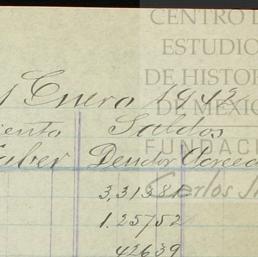 CENTRO D
ESTUDIO
DE HISTOR
DE MÉXIC
FUNDACI
Carlos Sl
1 Enero 1912
iento Saldos
aber Deudor Acreed
3,31381
1.25752
42639